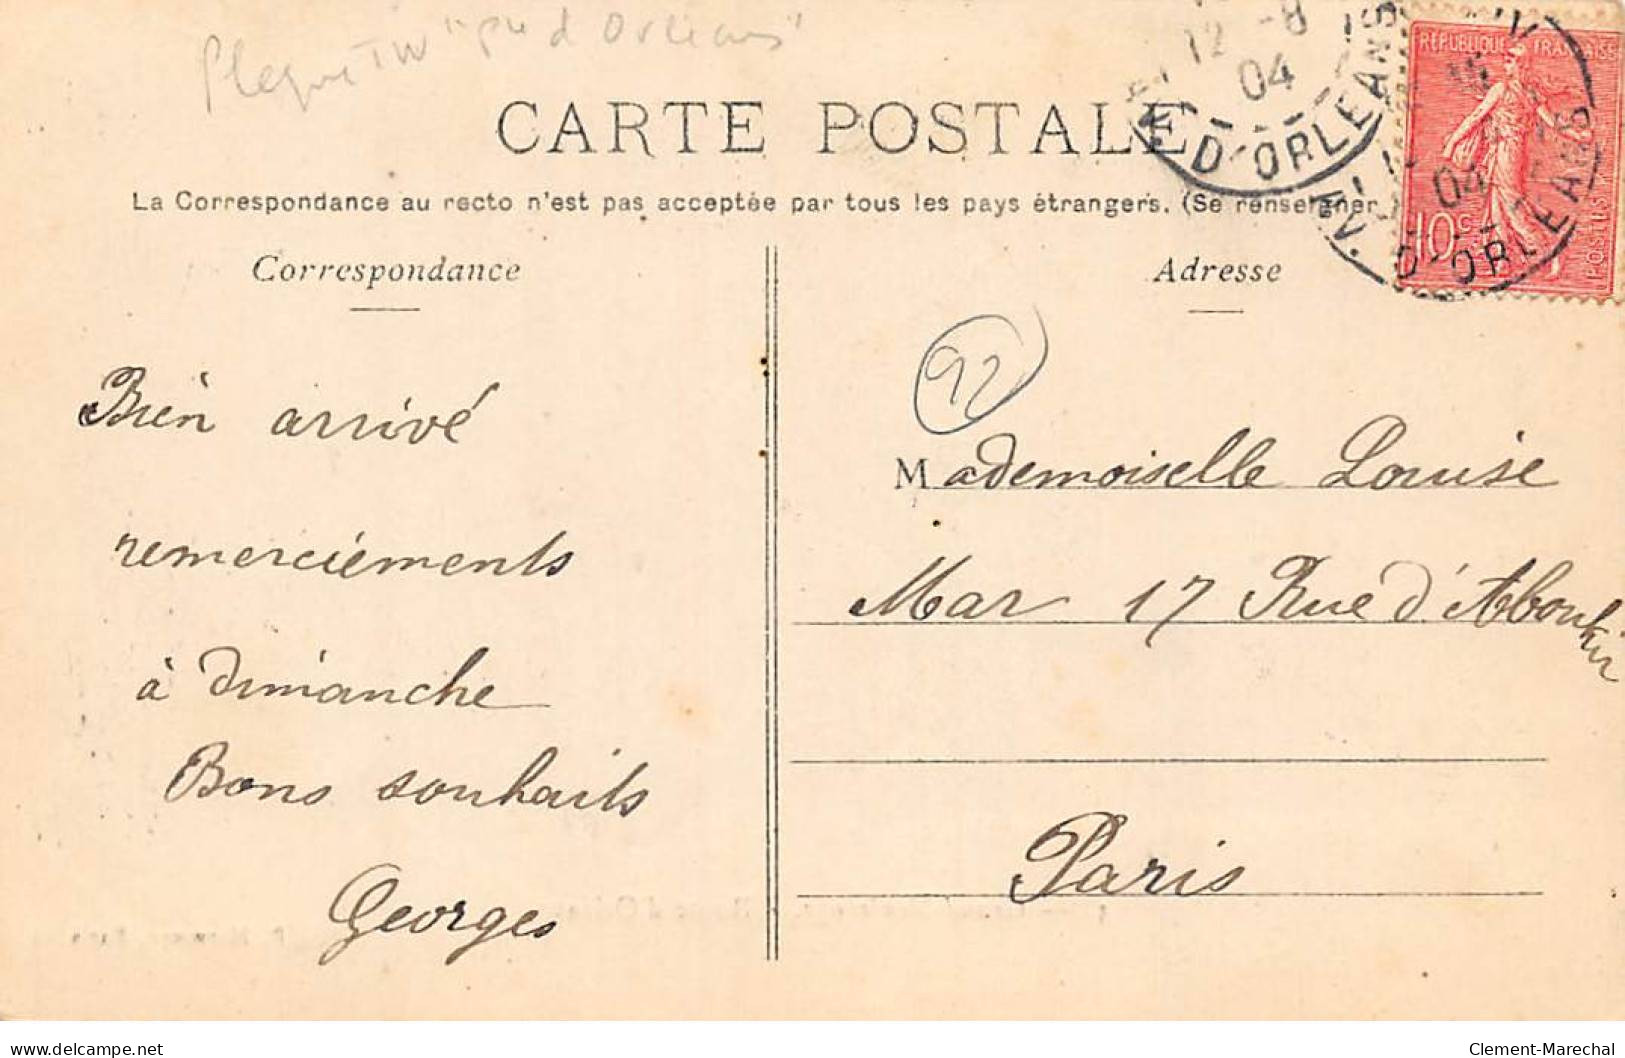 "gare d'Orléans"
CARTE POSTALE
La Correspondance au recto n'est pas acceptée par tous les pays étrangers. (Se renseigner
Correspondance
Bien arrivé
remerciements
à dimanche
Bons souhaits
Georges
12 -8
04
D'ORLEANS
REPUBLIQUE FRANÇAISE
10c
POSTES
04
D'ORLEANS
Adresse
92
Mademoiselle Louise
Mar 17 Rue d'Aboukir
Paris
delcampe.net
Clement-Marechal